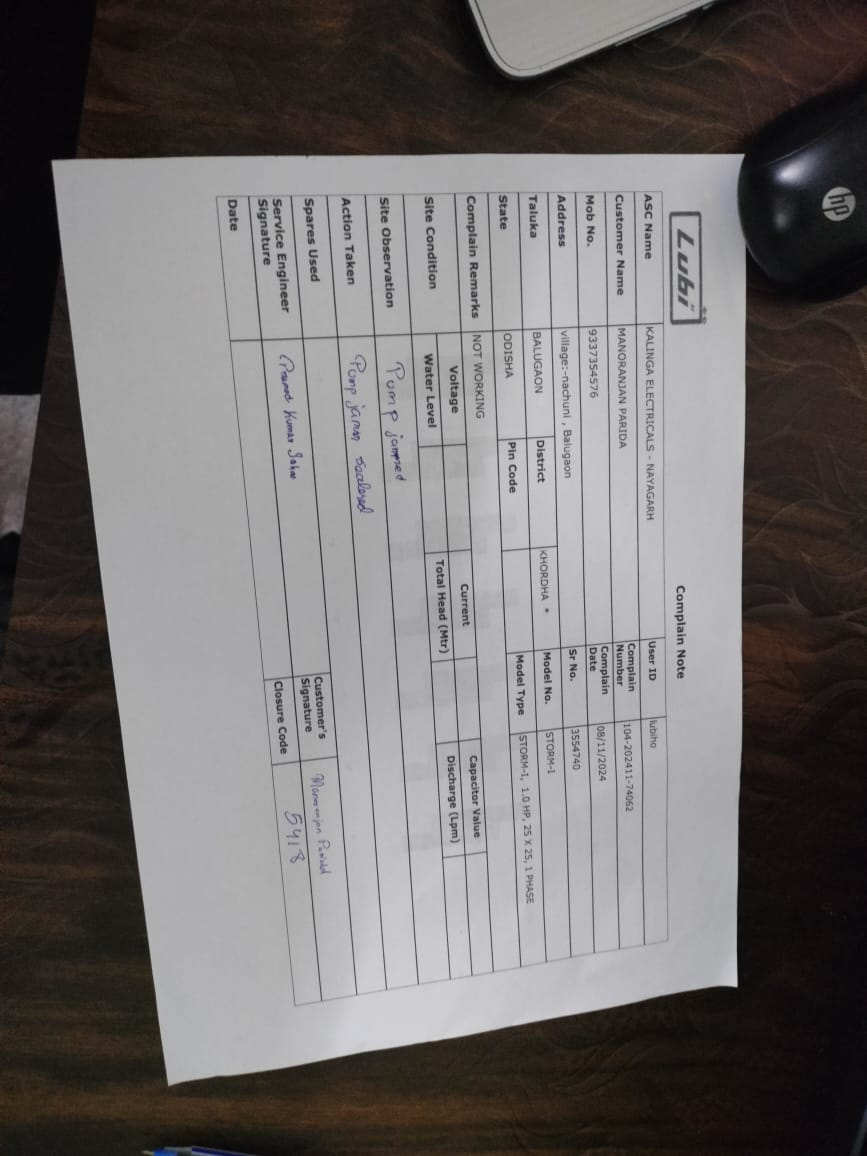 hp
Lubi
Complain Note
ASC Name KALINGA ELECTRICALS - NAYAGARH User ID lubiho
Customer Name MANORANJAN PARIDA Complain Number 104-202411-74062
Mob No. 9337354576 Complain Date 08/11/2024
Address village:-nachuni , Balugaon Sr No. 3554740
Taluka BALUGAON District KHORDHA * Model No. STORM-I
State ODISHA Pin Code Model Type STORM-I, 1.0 HP, 25 X 25, 1 PHASE
Complain Remarks NOT WORKING
Site Condition Voltage Current Capacitor Value
Water Level Total Head (Mtr) Discharge (Lpm)
Site Observation Pump jammed
Action Taken Pump jamm
Spares Used Customer's Signature Manoranjan
Service Engineer Signature Kumar Closure Code 5418
Date